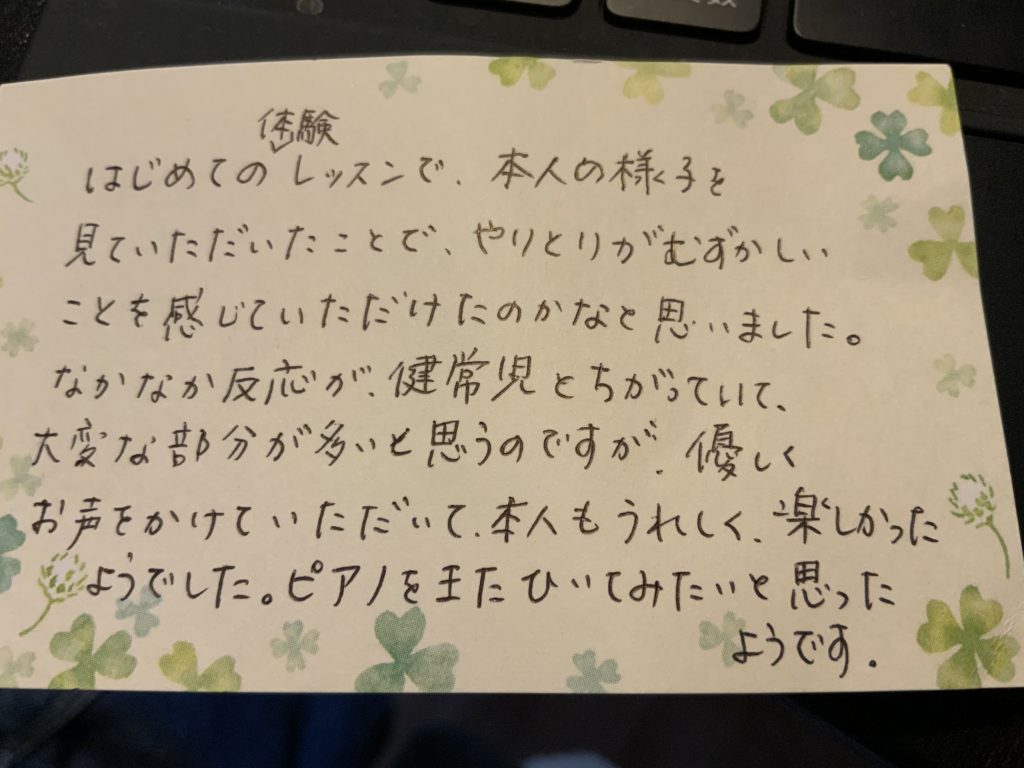 はじめての体験レッスンで、本人の様子を
見ていただいたことで、やりとりがむずかしい
ことを感じていただけたのかなと思いました。
なかなか反応が、健常児とちがっていて、
大変な部分が多いと思うのですが、優しく
お声をかけていただいて、本人もうれしく、楽しかった
ようでした。ピアノをまたひいてみたいと思った
ようです。